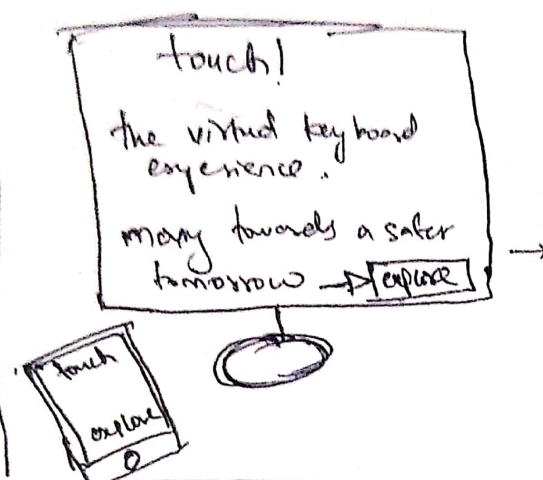 touch!
the virtual keyboard
experience.
many towards a safer
tomorrow → explore
touch
explore